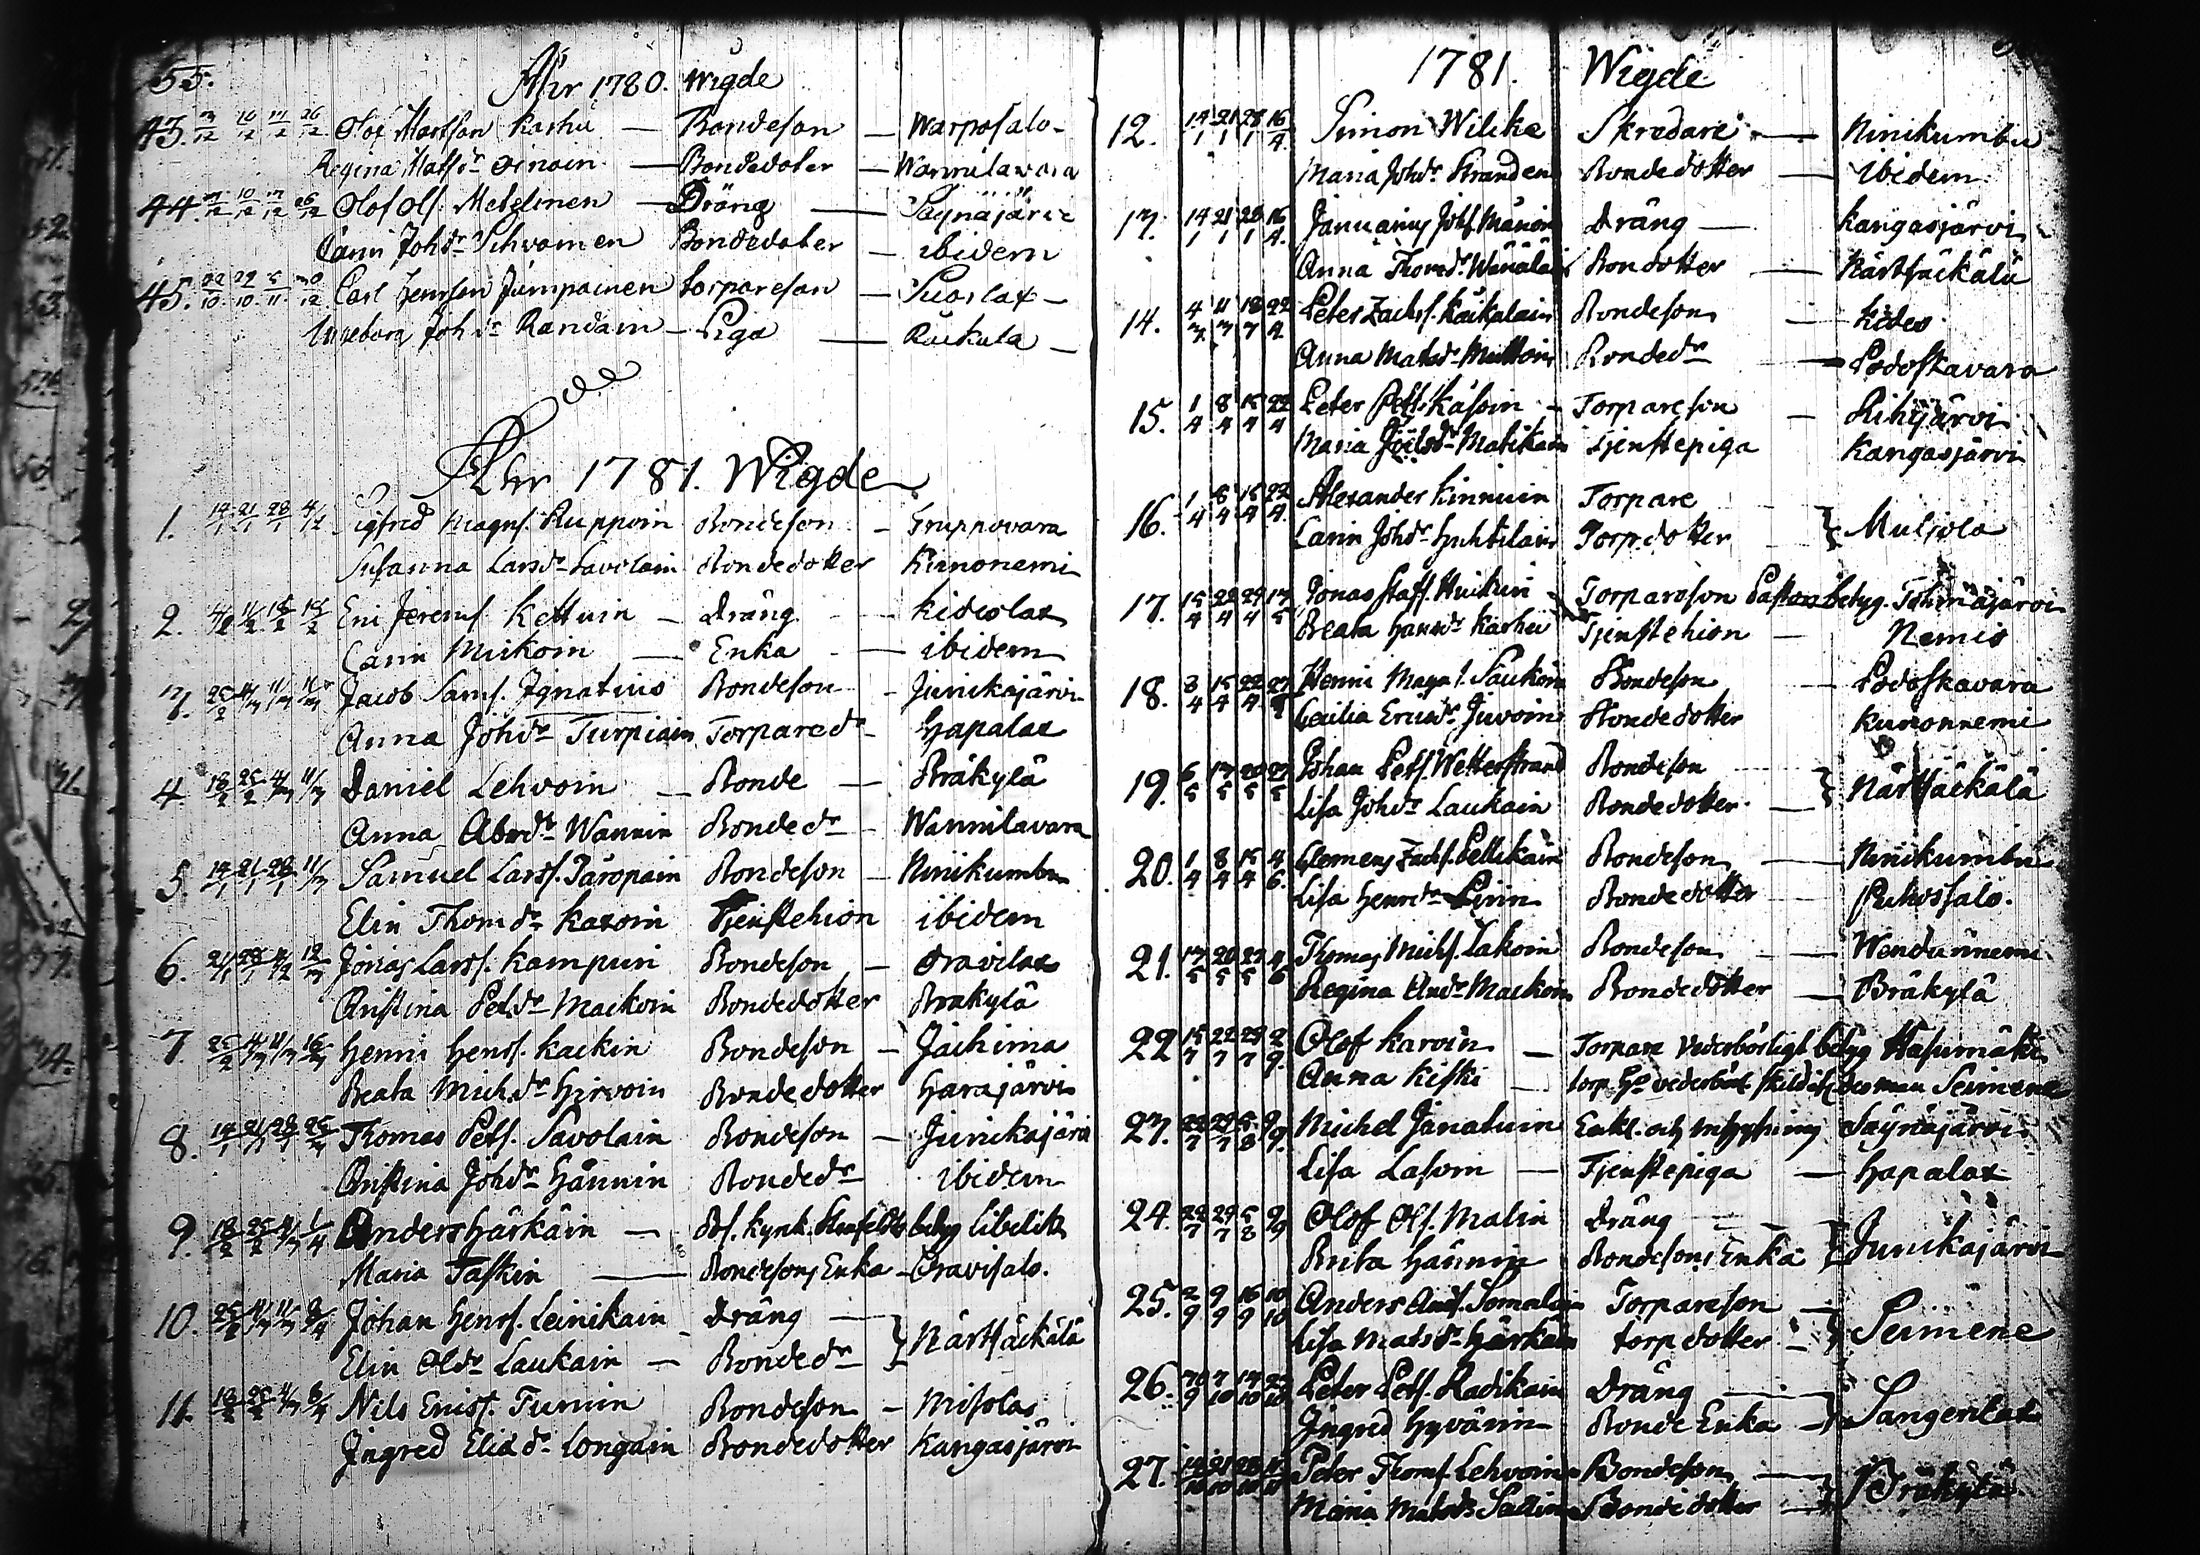 55. Åhr 1780. Wigde
43. 3/12 10/12 17/12 26/12 Olof Martsson Karhu — Bondeson — Warpasalo
Regina Matsdr Oinoin — Bondedoter — Wannilawara
44. 3/12 10/12 17/12 26/12 Olof Olfs. Metelinen — Dräng — Säynäjärvi
Carin Johdr Sihvoinen Bondedoter — ibidem
45. 22/10 29/10 5/11 30/12 Carl Henrson Jumpainen torpareson — Suorlax
Ingeborg Johdr Randain — Piga — Räckylä
Åhr 1781. Wigde
1. 14/1 21/1 28/1 4/12 Sigfred Magns. Ruppoin Bondeson — Gruppovara
Susanna Larsdr Savolain Bondedotter Kunonemi
2. 4/2 11/2 18/2 18/2 Eric Jeremf. Kettuin — Dräng — Kideslax
Carin Mickoin — Enka — ibidem
3. 25/2 4/3 11/3 11/3 Jacob Sams. Ignatius Bondeson — Junikajärvi
Anna Johdr Turpiain Torparedr — Hapalax
4. 18/2 25/2 4/3 11/3 Daniel Lehvoin — Bonde — Bräkylä
Anna Abrdr Wannin Bondedr — Wannilavara
5. 14/1 21/1 28/1 11/3 Samuel Larss. Päropain Bondeson — Ninikumbu
Elin Thomdr Karoin Tjenstehion ibidem
6. 21/1 28/1 4/2 12/3 Jonas Larss. Kampuri Bondeson — Oravilax
Christina Petdr Mackoin Bondedotter Bräkylä
7. 25/2 4/3 11/3 16/3 Henric Henrs. Kackin Bondeson — Jachima
Beata Michdr Hirvoin Bondedotter Harajärvi
8. 14/1 21/1 28/1 25/3 Thomas Pets. Savolain Bondeson — Junikajärvi
Christina Johdr Hännin Bondedr ibidem
9. 18/2 25/2 4/3 1/4 Anders Härkäin — betyg Libelits
Maria Taskin — Bondesons Enka — Oravisalo.
10. 25/2 4/3 11/3 8/4 Johan Henrs. Leinikain — Dräng — } Närsäckälä
Elin Oldr Laukain — Bondedr
11. 18/2 25/2 4/3 8/4 Nils Erics. Turuin Bondeson — Misolax
Ingred Eliædr Longain Bondedotter Kangasjärvi
1781. Wigde
12. 14/1 21/1 28/1 16/4 Simon Wilcke Skredare — Ninikumbu
Maria Johdr Stranden Bondedotter — ibidem
13. 14/1 21/1 28/1 16/4 Januarius Johs. Mänoin Dräng — Kangasjärvi
Anna Thomdr Wänäläin Bondotter — Närsäckälä
14. 4/3 11/3 18/3 22/4 Peter Zachs. Käikäläin Bondeson — Kides
Anna Matsdr Muttoin Bondedr — Podoskavara
15. 1/4 8/4 15/4 22/4 Peter Pets. Käsoin — Torpareson — Rihijärvi
Maria Joelsdr Matikain Tjenstepiga Kangasjärvi
16. 1/4 8/4 15/4 22/4 Alexander Kinnuin Torpare } Muljola
Carin Johdr Huhtilain Torpdotter
17. 15/4 22/4 29/4 17/5 Jonas Staffs. Huikuri — Torpareson Pastors betyg. Tohmajärvi
Beata Hansdr Karhu Tjenstehion — Nemis
18. 8/4 15/4 22/4 Henric Magns. Saukoin Bondeson — Podoskavara
Cecilia Ericsdr Juvoin Bondedotter Kunonnemi
19. 6/5 13/5 20/5 27/5 Johan Pets. Wetterstrand Bondeson } Närsäckälä
Lisa Johdr Laukain Bondedotter —
20. 1/4 8/4 15/4 4/6 Clemens Zachs. Pellikain Bondeson — Ninikumbu
Lisa Henrdr Pirin Bondedotter Puhossalo.
21. 13/5 20/5 27/5 4/6 Thomas Michs. Lakoin Bondeson — Wendunnemi
Regina Andr Mackoin Bondedotter — Bräkylä
22 15/7 22/7 29/7 2/9 Olof Karvin — Torpare vederbörligt betyg Hasumäki
Anna Kiski — Seimene
23. 22/7 29/7 5/8 9/9 Michel Janatuin Säynäjärvi
Lisa Lasoin — Tjenstepiga — Hapalax
24. 22/7 29/7 5/8 9/9 Olof Ols. Malin Dräng — } Junikajärvi
Brita Hännin Bondesons Enka
25. 2/9 9/9 16/9 10/10 Anders Ands. Somalain Torpareson — } Seimene
Lisa Matsdr Härkäin torpdotter —
26. 30/9 7/10 14/10 Peter Pets. Radikain Dräng — } Sangerilax
Ingred Hyvärin Bonde Enka —
27. 14/10 21/10 28/10 Peter Thoms. Lehvoin — Bondeson — } Bräkylä
Maria Matsdr Sallin Bondedotter —